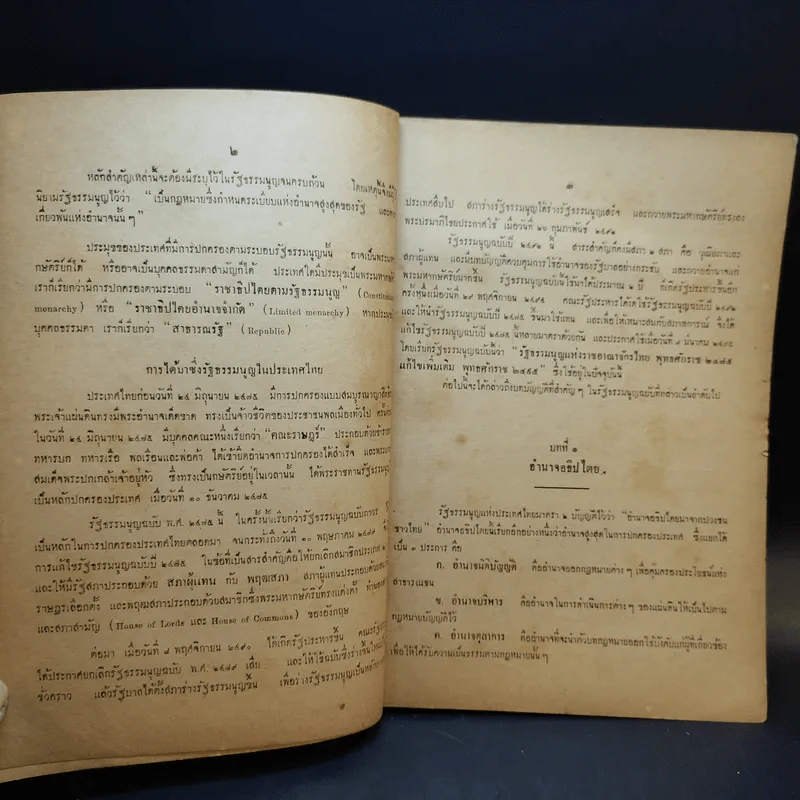 ๒
หลักสำคัญเหล่านี้จะต้องมีระบุไว้ในรัฐธรรมนูญจนครบถ้วน โดยเหตุนี้จึงมีผู้
นิยามรัฐธรรมนูญไว้ว่า "เป็นกฎหมายซึ่งกำหนดระเบียบแห่งอำนาจสูงสุดของรัฐ และ
เกี่ยวพันแห่งอำนาจนั้น ๆ"
ประมุขของประเทศที่มีการปกครองตามระบอบรัฐธรรมนูญนั้น อาจเป็นพระมหา
กษัตริย์ก็ได้ หรืออาจเป็นบุคคลธรรมดาสามัญก็ได้ ประเทศใดมีประมุขเป็นพระมหากษัตริย์
เราก็เรียกว่ามีการปกครองตามระบอบ "ราชาธิปไตยตามรัฐธรรมนูญ" (Constitution
monarchy) หรือ "ราชาธิปไตยอำนาจจำกัด" (Limited monarchy) หากประมุข
บุคคลธรรมดา เราก็เรียกว่า "สาธารณรัฐ" (Republic)
การได้มาซึ่งรัฐธรรมนูญในประเทศไทย
ประเทศไทยก่อนวันที่ ๒๔ มิถุนายน ๒๔๗๕ มีการปกครองแบบสมบูรณาญาสิทธิ
พระเจ้าแผ่นดินทรงมีพระอำนาจเด็ดขาด ทรงเป็นเจ้าชีวิตของประชาชนพลเมืองทั่วไป ครั้น
ในวันที่ ๒๔ มิถุนายน ๒๔๗๕ มีบุคคลคณะหนึ่งเรียกว่า "คณะราษฎร์" ประกอบด้วยข้าราช
ทหารบก ทหารเรือ พลเรือนและพ่อค้า ได้เข้ายึดอำนาจการปกครองได้สำเร็จ และพระบาท
สมเด็จพระปกเกล้าเจ้าอยู่หัว ซึ่งทรงเป็นกษัตริย์อยู่ในเวลานั้น ได้พระราชทานรัฐธรรมนูญ
เป็นหลักปกครองประเทศ เมื่อวันที่ ๑๐ ธันวาคม ๒๔๗๕
รัฐธรรมนูญฉบับ พ.ศ. ๒๔๗๕ นี้ ในครั้งนั้นเรียกว่ารัฐธรรมนูญฉบับถาวร
เป็นหลักในการปกครองประเทศไทยตลอดมา จนกระทั่งถึงวันที่ ๑๐ พฤษภาคม ๒๔๘๙
การแก้ไขรัฐธรรมนูญฉบับปี ๒๔๗๕ ในข้อที่เป็นสารสำคัญคือให้ยกเลิกสมาชิกประเภท
และให้มีรัฐสภาประกอบด้วย สภาผู้แทน กับ พฤฒสภา สภาผู้แทนประกอบด้วยสมาชิก
ราษฎรเลือกตั้ง และพฤฒสภาประกอบด้วยสมาชิกซึ่งพระมหากษัตริย์ทรงแต่งตั้ง
และสภาสามัญ (House of Lords และ House of Commons) ของอังกฤษ
ต่อมา เมื่อวันที่ ๘ พฤศจิกายน ๒๔๙๐ ได้เกิดรัฐประหารขึ้น คณะรัฐประ
ได้ประกาศยกเลิกรัฐธรรมนูญฉบับ พ.ศ. ๒๔๘๙ เสีย และให้ใช้ฉบับซึ่งร่างขึ้นใหม่
ชั่วคราว แล้วรัฐบาลได้ตั้งสภาร่างรัฐธรรมนูญขึ้น เพื่อร่างรัฐธรรมนูญเป็นหลัก
๓
ประเทศสืบไป สภาร่างรัฐธรรมนูญได้ร่างรัฐธรรมนูญเสร็จ และถวายพระมหากษัตริย์ทรงลง
พระปรมาภิไธยประกาศใช้ เมื่อวันที่ ๒๖ กุมภาพันธ์ ๒๔๙๒
รัฐธรรมนูญฉบับปี ๒๔๙๒ นี้ สาระสำคัญก็คงมีสภา ๒ สภา คือ วุฒิสภาและ
สภาผู้แทน และมีบทบัญญัติควบคุมการใช้อำนาจของรัฐบาลอย่างกระชับ และถวายอำนาจแก่
พระมหากษัตริย์มากขึ้น รัฐธรรมนูญฉบับนี้ใช้มาได้ประมาณ ๒ ปี ก็เกิดรัฐประหารขึ้นอีก
ครั้งหนึ่งเมื่อวันที่ ๒๙ พฤศจิกายน ๒๔๙๔ คณะรัฐประหารได้งดใช้รัฐธรรมนูญฉบับปี ๒๔๙๒
และให้นำรัฐธรรมนูญฉบับปี ๒๔๗๕ ขึ้นมาใช้แทน และเพื่อให้เหมาะสมกับสภาพการณ์ จึงได้
แก้ไขรัฐธรรมนูญฉบับปี ๒๔๗๕ นี้หลายมาตราด้วยกัน และประกาศใช้เมื่อวันที่ ๘ มีนาคม ๒๔๙๕
โดยเรียกรัฐธรรมนูญฉบับนี้ว่า "รัฐธรรมนูญแห่งราชอาณาจักรไทย พุทธศักราช ๒๔๗๕
แก้ไขเพิ่มเติม พุทธศักราช ๒๔๙๕" ซึ่งใช้อยู่ในปัจจุบันนี้
ต่อไปนี้จะได้กล่าวถึงบทบัญญัติที่สำคัญ ๆ ในรัฐธรรมนูญฉบับที่กล่าวเป็นลำดับไป
บทที่ ๑
อำนาจอธิปไตย
รัฐธรรมนูญแห่งประเทศไทยมาตรา ๒ บัญญัติไว้ว่า "อำนาจอธิปไตยมาจากปวงชน
ชาวไทย" อำนาจอธิปไตยนี้เรียกอีกอย่างหนึ่งว่าอำนาจสูงสุดในการปกครองประเทศ ซึ่งแยกได้
เป็น ๓ ประการ คือ
ก. อำนาจนิติบัญญัติ คืออำนาจออกกฎหมายต่าง ๆ เพื่อคุ้มครองประโยชน์แห่ง
สาธารณชน
ข. อำนาจบริหาร คืออำนาจในการดำเนินการต่าง ๆ ของแผ่นดินให้เป็นไปตาม
กฎหมายบัญญัติไว้
ค. อำนาจตุลาการ คืออำนาจที่จะนำตัวบทกฎหมายออกใช้บังคับแก่ผู้ที่เกี่ยวข้อง
เพื่อให้ได้รับความเป็นธรรมตามกฎหมายนั้น ๆ